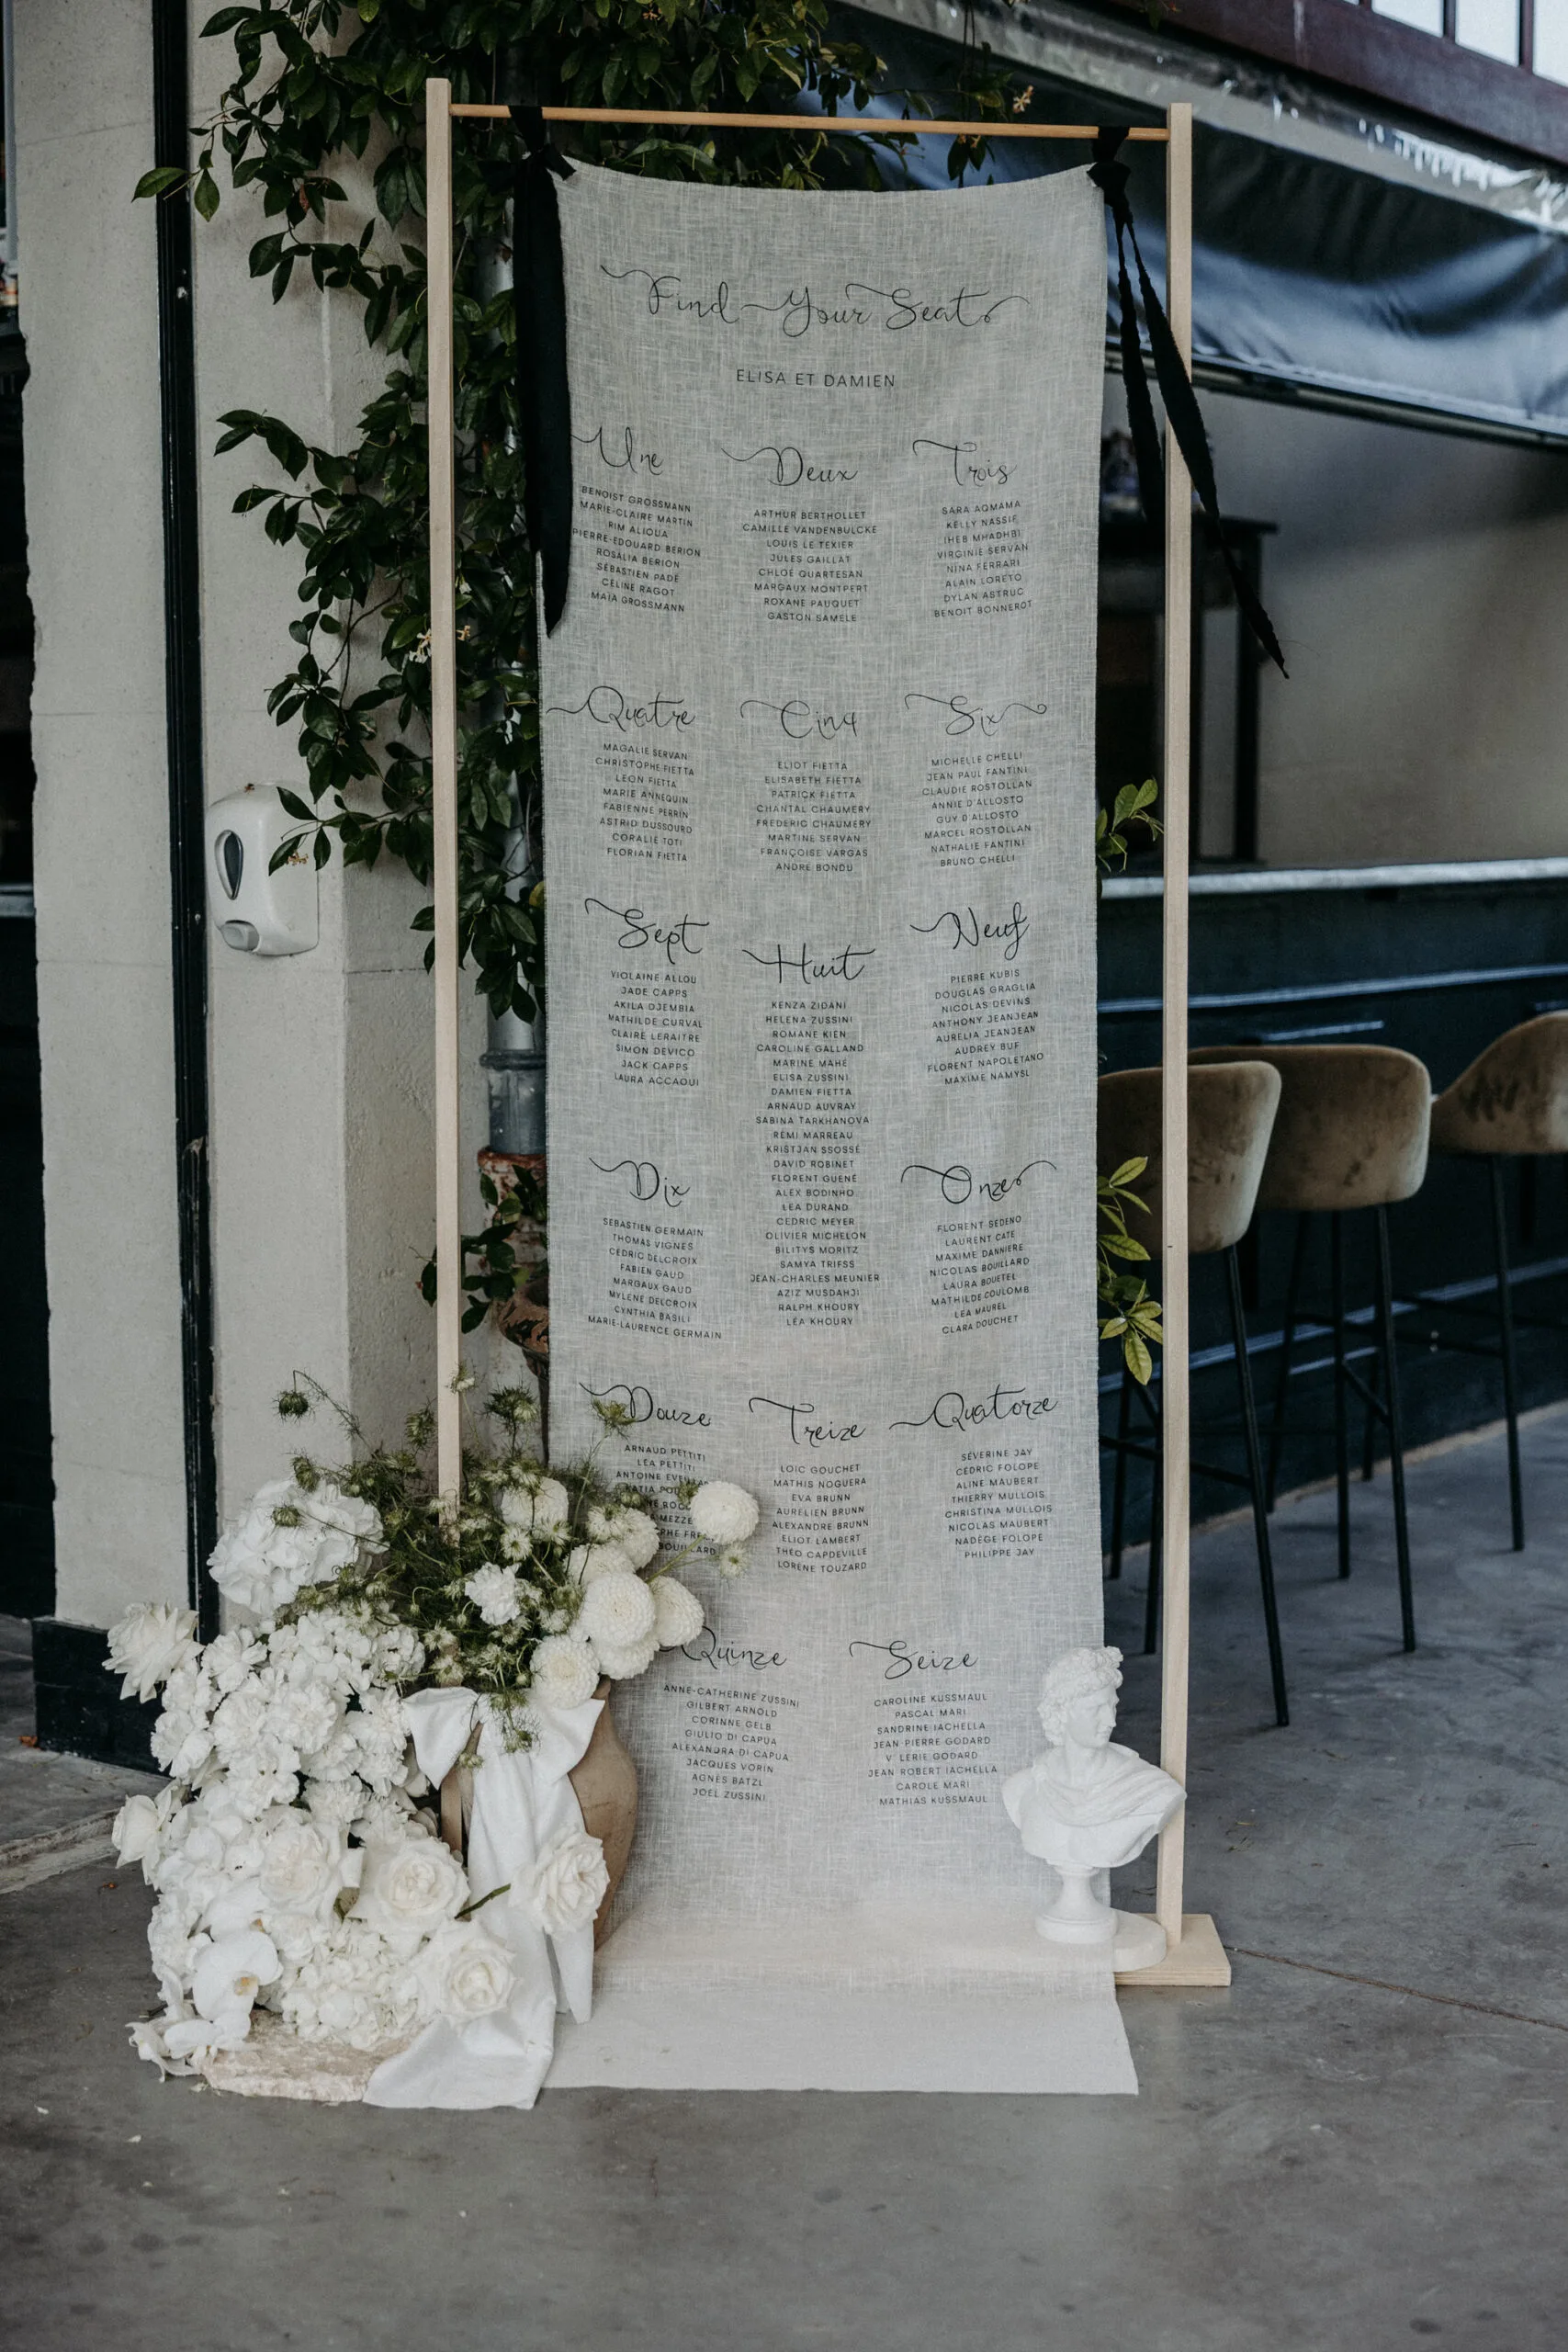 Find Your Seat
ELISA ET DAMIEN
Une
BENOIST GROSSMANN
MARIE-CLAIRE MARTIN
RIM ALIOUA
PIERRE-EDOUARD BERION
ROSALIA BERION
SÉBASTIEN PADÉ
CÉLINE RAGOT
MAÏA GROSSMANN
Deux
ARTHUR BERTHOLLET
CAMILLE VANDENBULCKE
LOUIS LE TEXIER
JULES GAILLAT
CHLOÉ QUARTESAN
MARGAUX MONTPERT
ROXANE PAUQUET
GASTON SAMELE
Trois
SARA AQMAMA
KELLY NASSIF
IHEB MHADHBI
VIRGINIE SERVAN
NINA FERRARI
ALAIN LORETO
DYLAN ASTRUC
BENOIT BONNEROT
Quatre
MAGALIE SERVAN
CHRISTOPHE FIETTA
LEON FIETTA
MARIE ANNEQUIN
FABIENNE PERRIN
ASTRID DUSSOURD
CORALIE TOTI
FLORIAN FIETTA
Cinq
ELIOT FIETTA
ELISABETH FIETTA
PATRICK FIETTA
CHANTAL CHAUMERY
FREDERIC CHAUMERY
MARTINE SERVAN
FRANÇOISE VARGAS
ANDRE BONDU
Six
MICHELLE CHELLI
JEAN PAUL FANTINI
CLAUDIE ROSTOLLAN
ANNIE D'ALLOSTO
GUY D'ALLOSTO
MARCEL ROSTOLLAN
NATHALIE FANTINI
BRUNO CHELLI
Sept
VIOLAINE ALLOU
JADE CAPPS
AKILA DJEMBIA
MATHILDE CURVAL
CLAIRE LERAITRE
SIMON DEVICO
JACK CAPPS
LAURA ACCAOUI
Huit
KENZA ZIDANI
HELENA ZUSSINI
ROMANE KIEN
CAROLINE GALLAND
MARINE MAHÉ
ELISA ZUSSINI
DAMIEN FIETTA
ARNAUD AUVRAY
SABINA TARKHANOVA
RÉMI MARREAU
KRISTJAN SSOSSÉ
DAVID ROBINET
FLORENT GUENÉ
ALEX BODINHO
LÉA DURAND
CEDRIC MEYER
OLIVIER MICHELON
BILITYS MORITZ
SAMYA TRIFSS
JEAN-CHARLES MEUNIER
AZIZ MUSDAHJI
RALPH KHOURY
LÉA KHOURY
Neuf
PIERRE KUBIS
DOUGLAS GRAGLIA
NICOLAS DEVINS
ANTHONY JEANJEAN
AURELIA JEANJEAN
AUDREY BUF
FLORENT NAPOLETANO
MAXIME NAMYSL
Dix
SEBASTIEN GERMAIN
THOMAS VIGNES
CÉDRIC DELCROIX
FABIEN GAUD
MARGAUX GAUD
MYLENE DELCROIX
CYNTHIA BASILI
MARIE-LAURENCE GERMAIN
Onze
FLORENT SEDENO
LAURENT CATE
MAXIME DANNIERE
NICOLAS BOUILLARD
LAURA BOUETEL
MATHILDE COULOMB
LÉA MAUREL
CLARA DOUCHET
Douze
ARNAUD PETTITI
LÉA PETTITI
ANTOINE
Treize
LOIC GOUCHET
MATHIS NOGUERA
EVA BRUNN
AURELIEN BRUNN
ALEXANDRE BRUNN
ELIOT LAMBERT
THÉO CAPDEVILLE
LORÈNE TOUZARD
Quatorze
SÉVERINE JAY
CÉDRIC FOLOPE
ALINE MAUBERT
THIERRY MULLOIS
CHRISTINA MULLOIS
NICOLAS MAUBERT
NADÈGE FOLOPE
PHILIPPE JAY
Quinze
ANNE-CATHERINE ZUSSINI
GILBERT ARNOLD
CORINNE GELB
GIULIO DI CAPUA
ALEXANDRA DI CAPUA
JACQUES VORIN
AGNÈS BATZL
JOEL ZUSSINI
Seize
CAROLINE KUSSMAUL
PASCAL MARI
SANDRINE IACHELLA
JEAN PIERRE GODARD
V LERIE GODARD
JEAN ROBERT IACHELLA
CAROLE MARI
MATHIAS KUSSMAUL